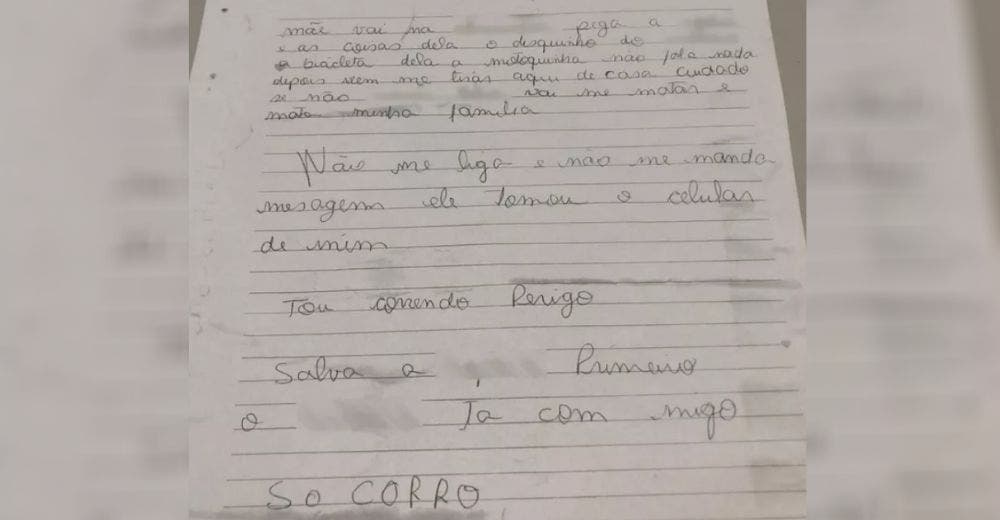 mãe vai na pega a
e as coisas dela o disquinho de
bicicleta dela a motoquinha não fala nada
depois vem me tirar aqui de casa cuidado
se não vai me matar e
mata minha familia
Não me liga e não me manda
mesagem ele Tomou o celular
de mim
Tou correndo Perigo
Salva a Primeiro
o Ta com migo
SO CORRO